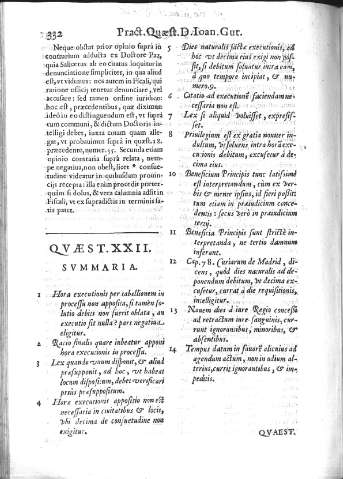 332 Pract. Quæst. D. Ioan. Gut.
Neque obstat prior opinio supra in
contrarium adducta ex Doctore Paz,
quia Saliceras ab eo citatus loquitur in
denunciatione simpliciter, in qua aliud
est, vt videtur: nos autem in fiscali, qui
ratione officij tenetur denunciare, vel
accusare: sed tamen ordine iuridico:
hoc est, præcedente, quæ diximus:
ideò ita eo distinguendum est, vt supra
cum communi, & dictum Doctoris in-
telligi debet, iuxta eosam quam alle-
gat, vt probauimus suprà in quæst. 18.
præcedente, numer. 95. Secunda etiam
opinio contraria suprà relata, nem-
pe organius, non obest, licet consue-
tudine videatur in quibusdam prouin-
cijs recepta: illa enim procedit parter-
quam si dolus, & vera calumnia adsit in
Fiscali, vt ex supradictis in terminis sa-
tis patet.
QVÆST. XXII.
SVMMARIA.
1 Hora executionis per tabellionem in
processu non apposita, si tamen solu-
tio debiti non fuerit oblata, an
executio sit nulla? pars negatiua
eligitur.
2 Ratio finalis quare iubeatur apponi
hora executionis in processu.
3 Lex quando vnum disponit, & aliud
præsupponit, ad hoc, vt habeat
locum dispositum, debet verificari
priùs præsuppositum.
4 Hora executionis appositio non est
necessaria in ciuitatibus & locis,
vbi decima de consuetudine non
exigitur.
5 Dies naturalis factæ executionis, ad
hoc vt decima eius exigi non pos-
sit, si debitum soluatur intra eam,
à quo tempore incipiat, & nu-
mero.9.
6 Citatio ad executionem faciendam ne-
cessaria non est.
7 Lex si aliquid voluisset, expressis-
set.
8 Priuilegium est ex gratia nouiter in-
dultum, vt soluens intra hora exe-
cutionis debitum, excusetur à de-
cima eius.
10 Beneficium Principis tunc latissimè
est interpretandum, cùm ex ver-
bis & mente ipsius, id fieri possit:
tum etiam in præiudicium conce-
dentis: secus verò in præiudicium
tertij.
11 Beneficia Principis sunt strictè in-
terpretanda, ne tertio damnum
inferant.
12 Cap. 78. Curiarum de Madrid, di-
cens, quòd dies naturalis ad de-
ponendum debitum, vt decima ex-
cusetur, currat à die requisitionis,
intelligitur.
13 Nouem dies d iure Regio concessi
ad retractum iure sanguinis, cur-
runt ignorantibus, minoribus, &
absentibus.
14 Tempus datum in fauorem alicuius ad
agendum actum, non in odium al-
terius, currit ignorantibus, & im-
peditis.
QVÆST.